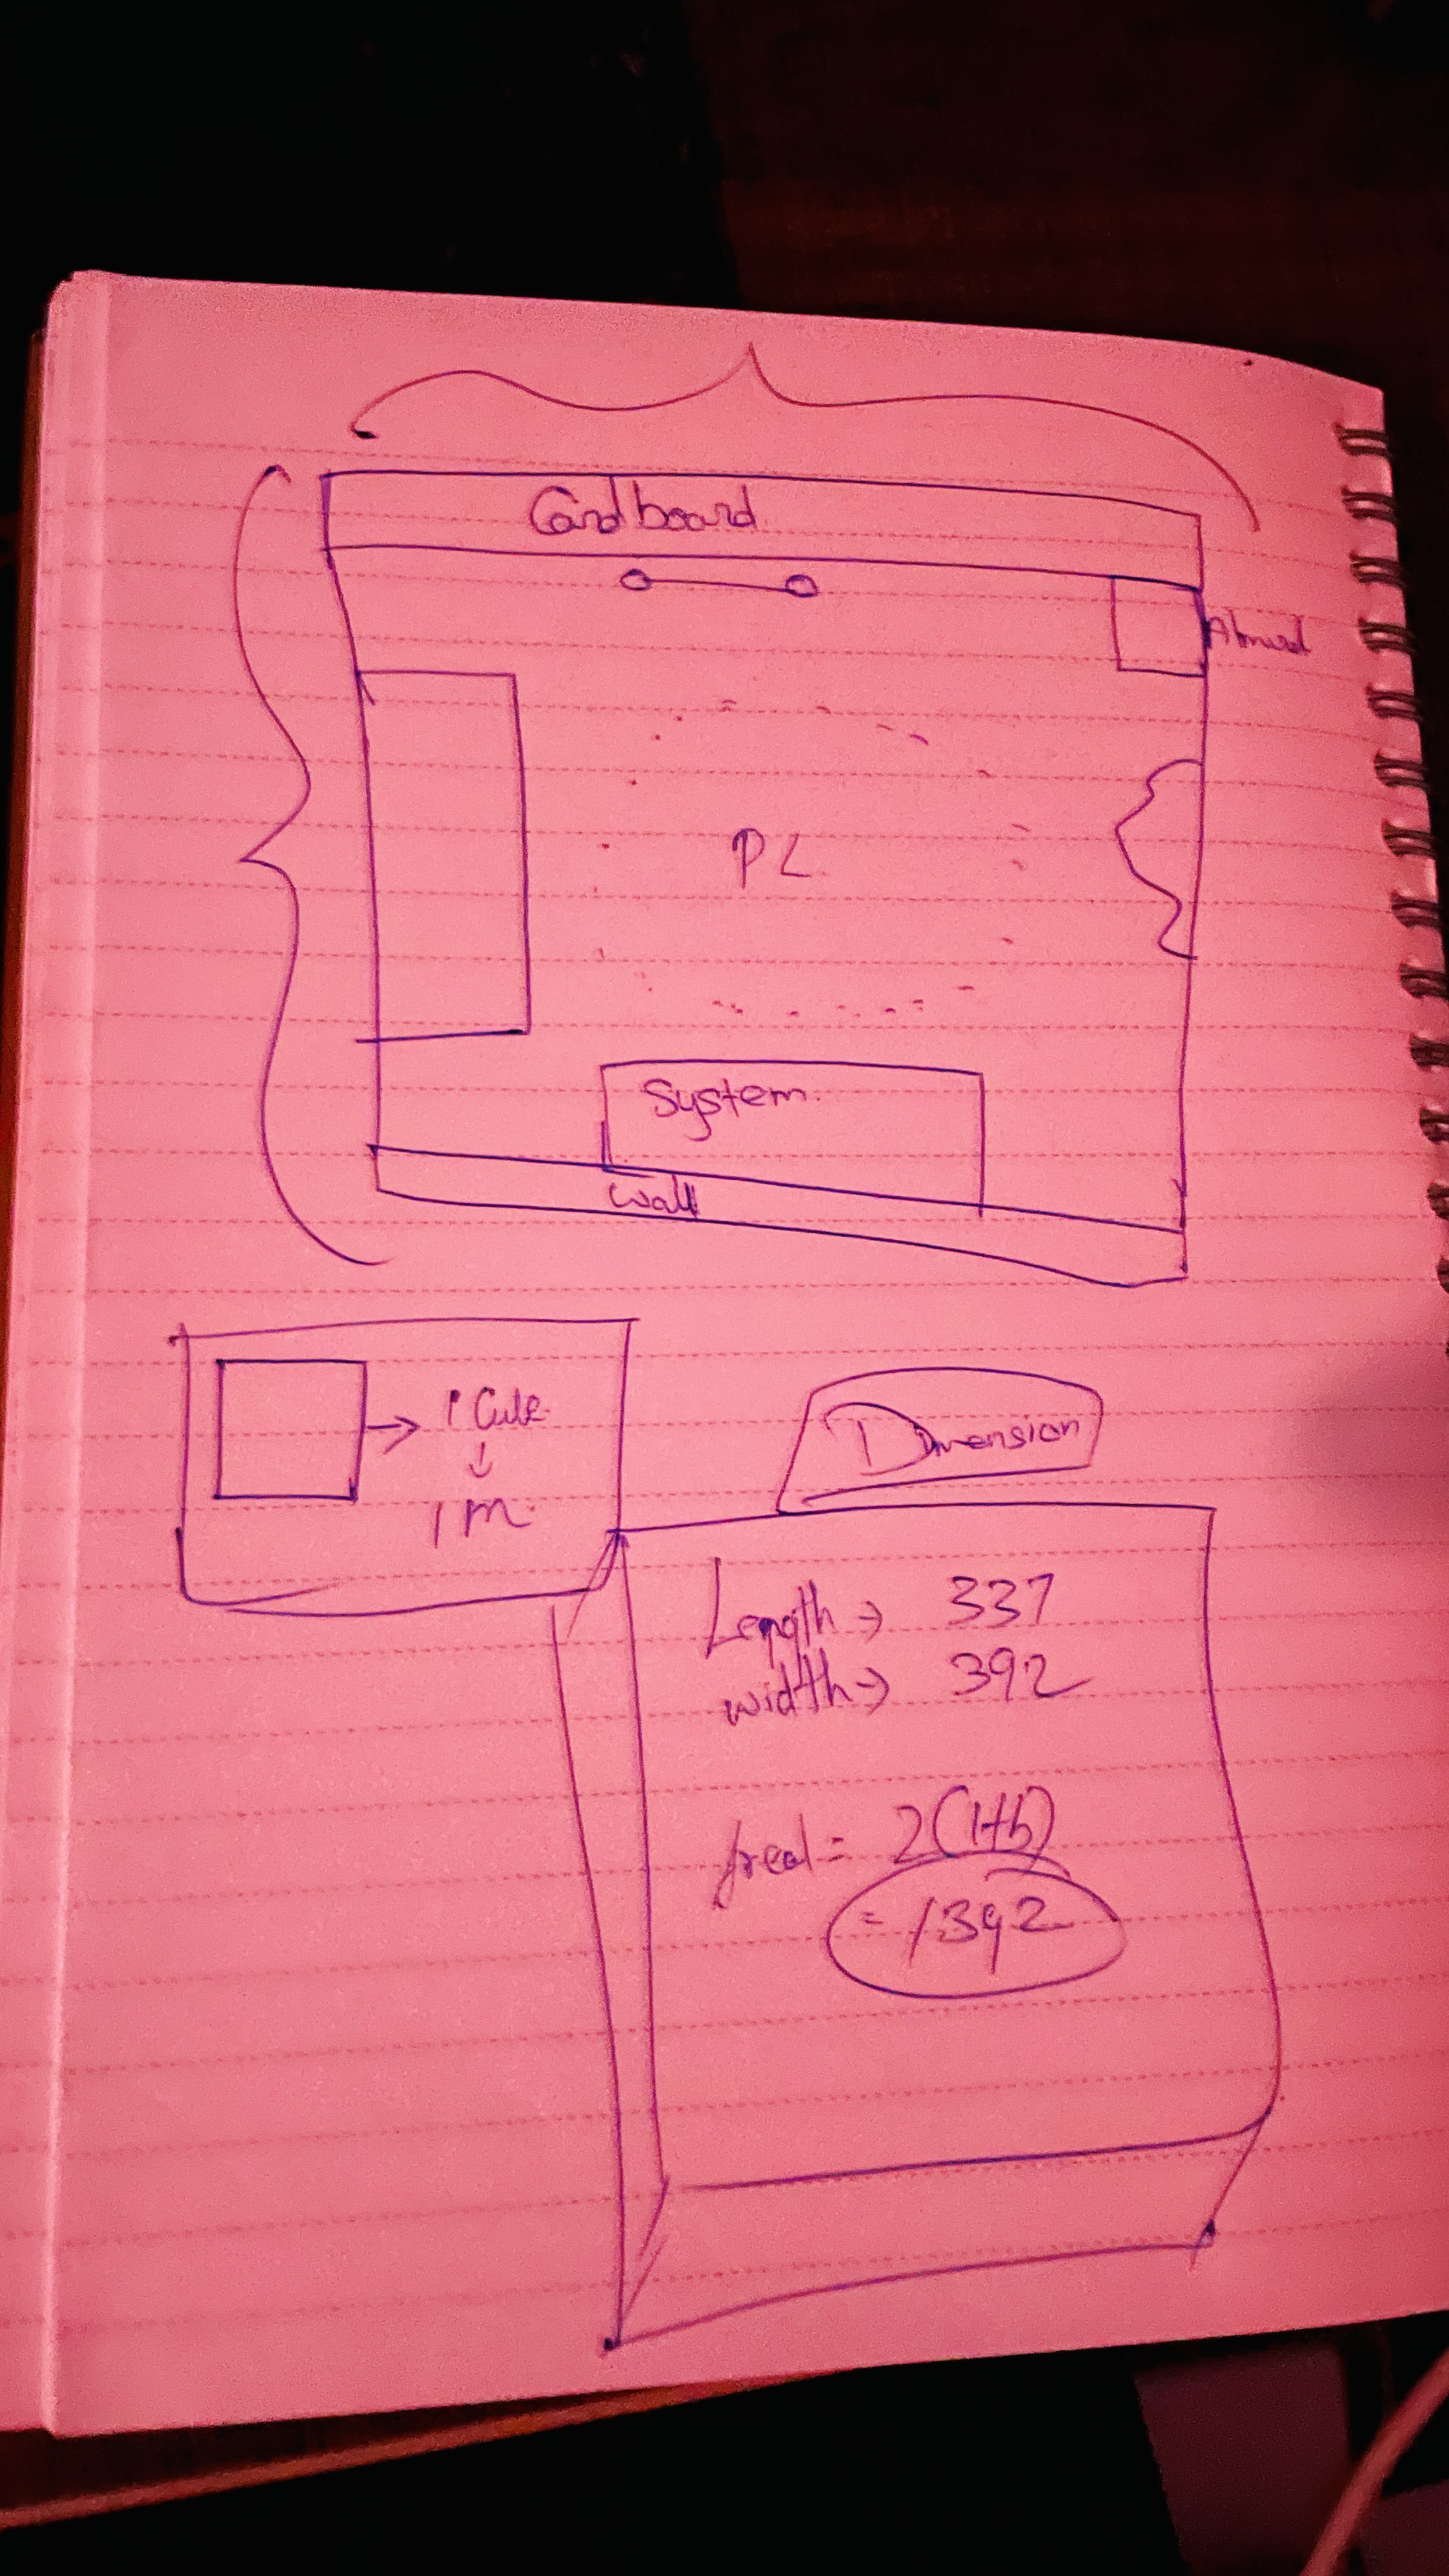 Cardboard
PL
System
Wall
1 Cube
1 m.
Dimension
Length → 337
width → 392
= 2(l+b)
= 1392